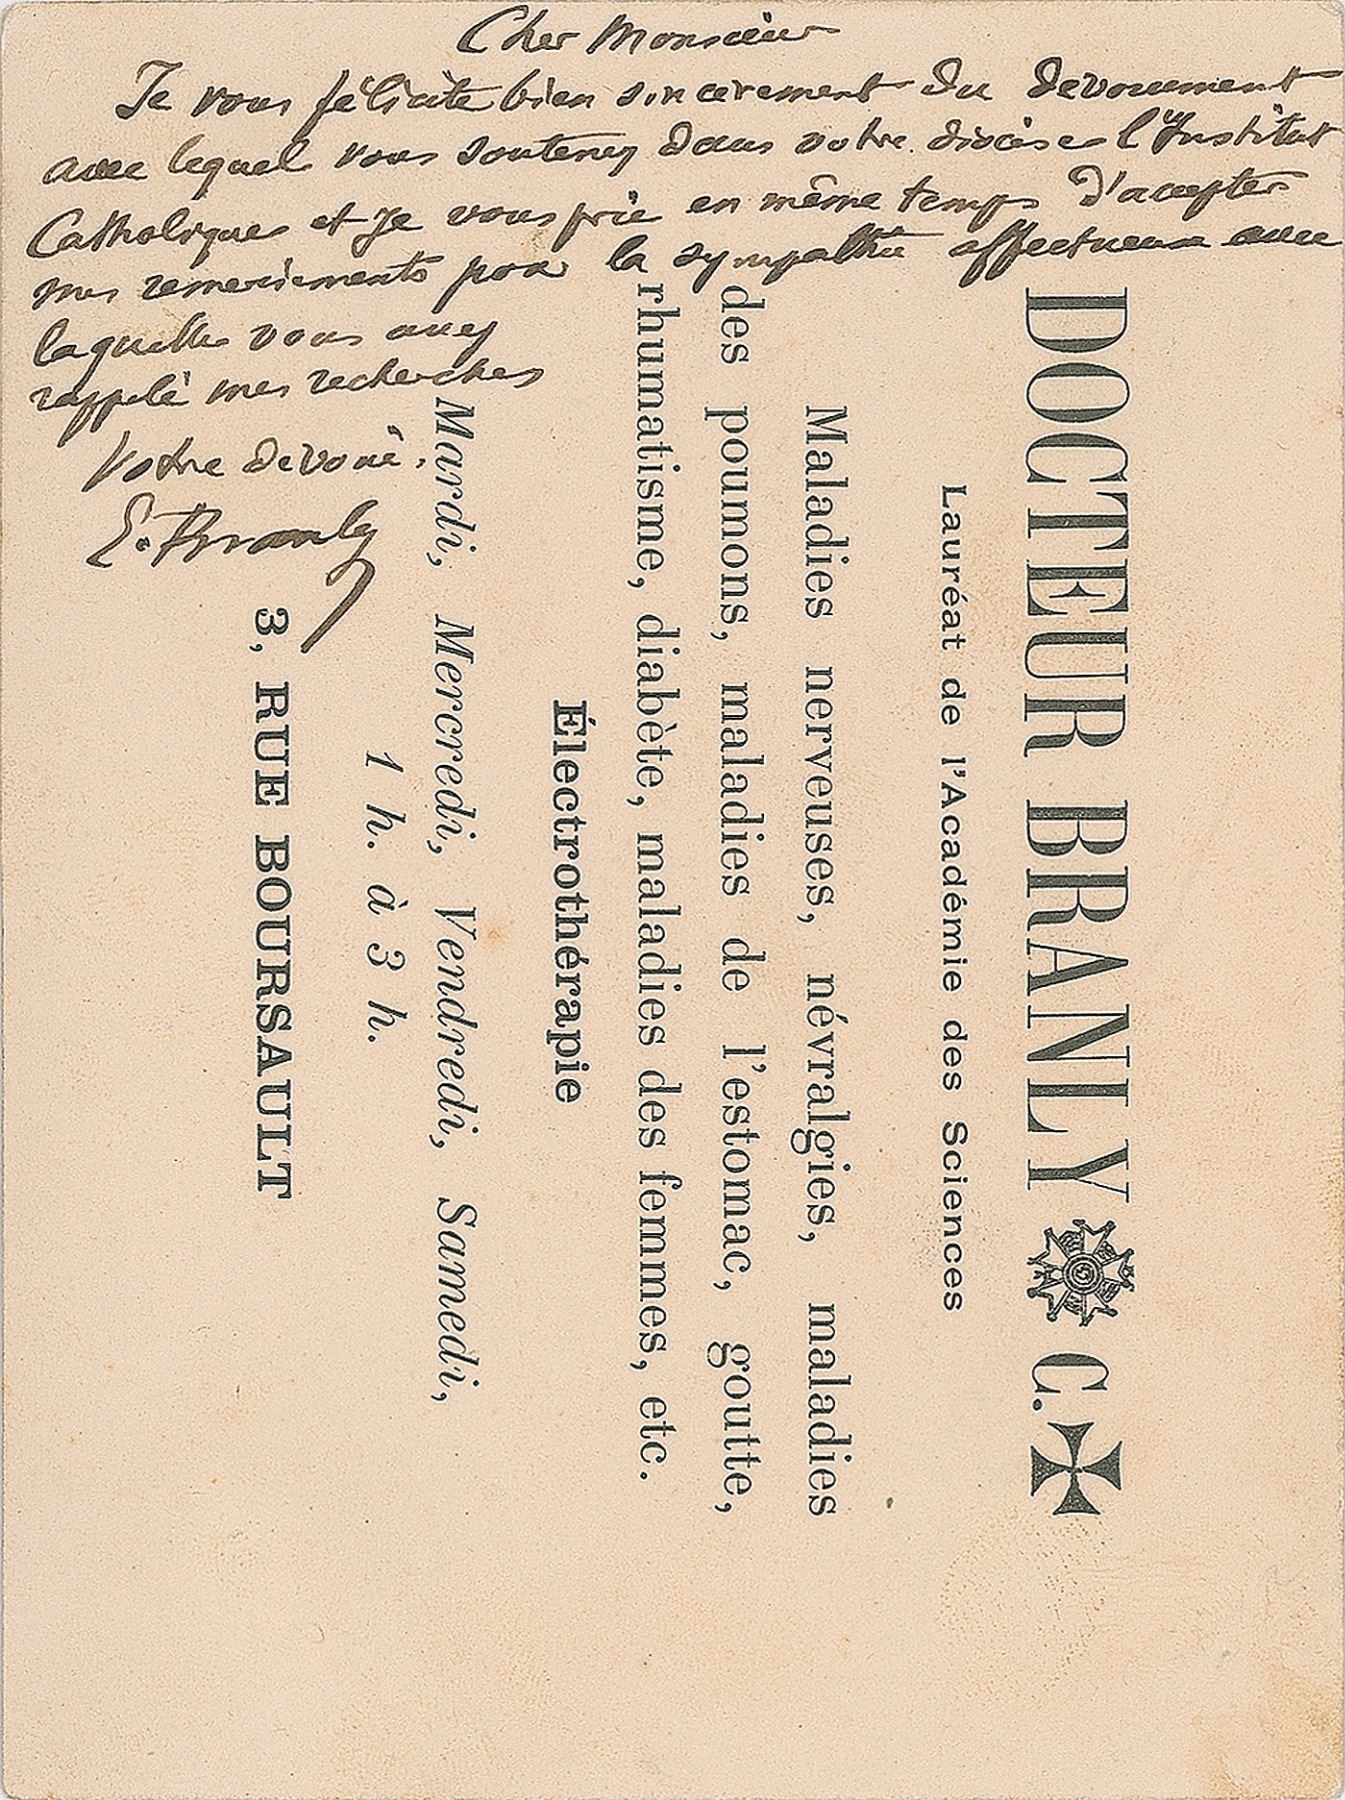 Cher Monsieur
Je vous félicite bien sincèrement du dévouement
avec lequel vous soutenez dans votre diocèse l'Institut
Catholique et je vous prie en même temps d'accepter
mes remerciements pour la sympathie affectueuse avec
laquelle vous avez
rappelé mes recherches
Votre dévoué.
E. Branly
DOCTEUR BRANLY C.
Lauréat de l'Académie des Sciences
Maladies nerveuses, névralgies, maladies
des poumons, maladies de l'estomac, goutte,
rhumatisme, diabète, maladies des femmes, etc.
Électrothérapie
Mardi, Mercredi, Vendredi, Samedi,
1 h. à 3 h.
3, RUE BOURSAULT